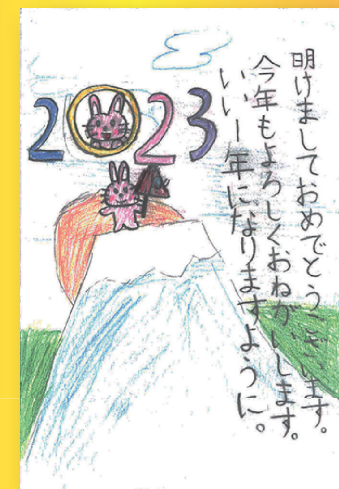 2023
明けましておめでとうございます。
今年もよろしくおねがいします。
いい一年になりますように。